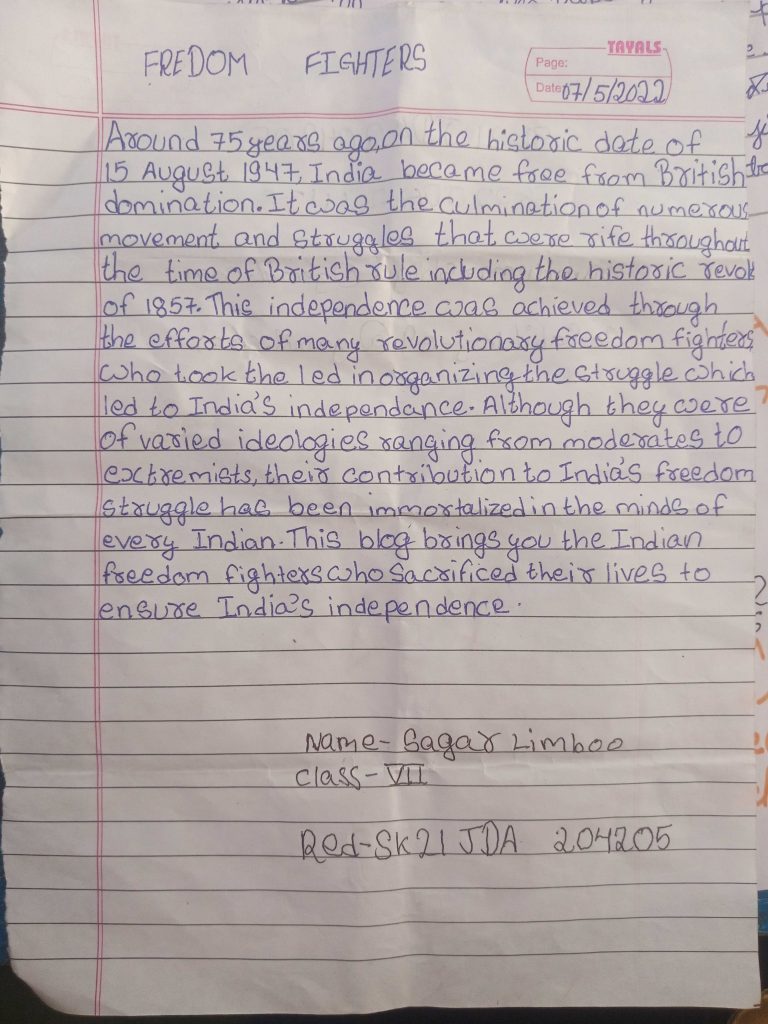 FREDOM FIGHTERS
TAYALS
Page:
Date 07/5/2022
Around 75 years ago, on the historic date of
15 August 1947, India became free from British
domination. It was the culmination of numerous
movement and struggles that were rife throughout
the time of British rule including the historic revolt
of 1857. This independence was achieved through
the efforts of many revolutionary freedom fighters
who took the led in organizing the struggle which
led to India's independance. Although they were
of varied ideologies ranging from moderates to
extremists, their contribution to India's freedom
struggle has been immortalized in the minds of
every Indian. This blog brings you the Indian
freedom fighters who sacrificed their lives to
ensure India's independence.
Name- Sagar Limboo
Class- VII
Red-SK21 JDA 204205